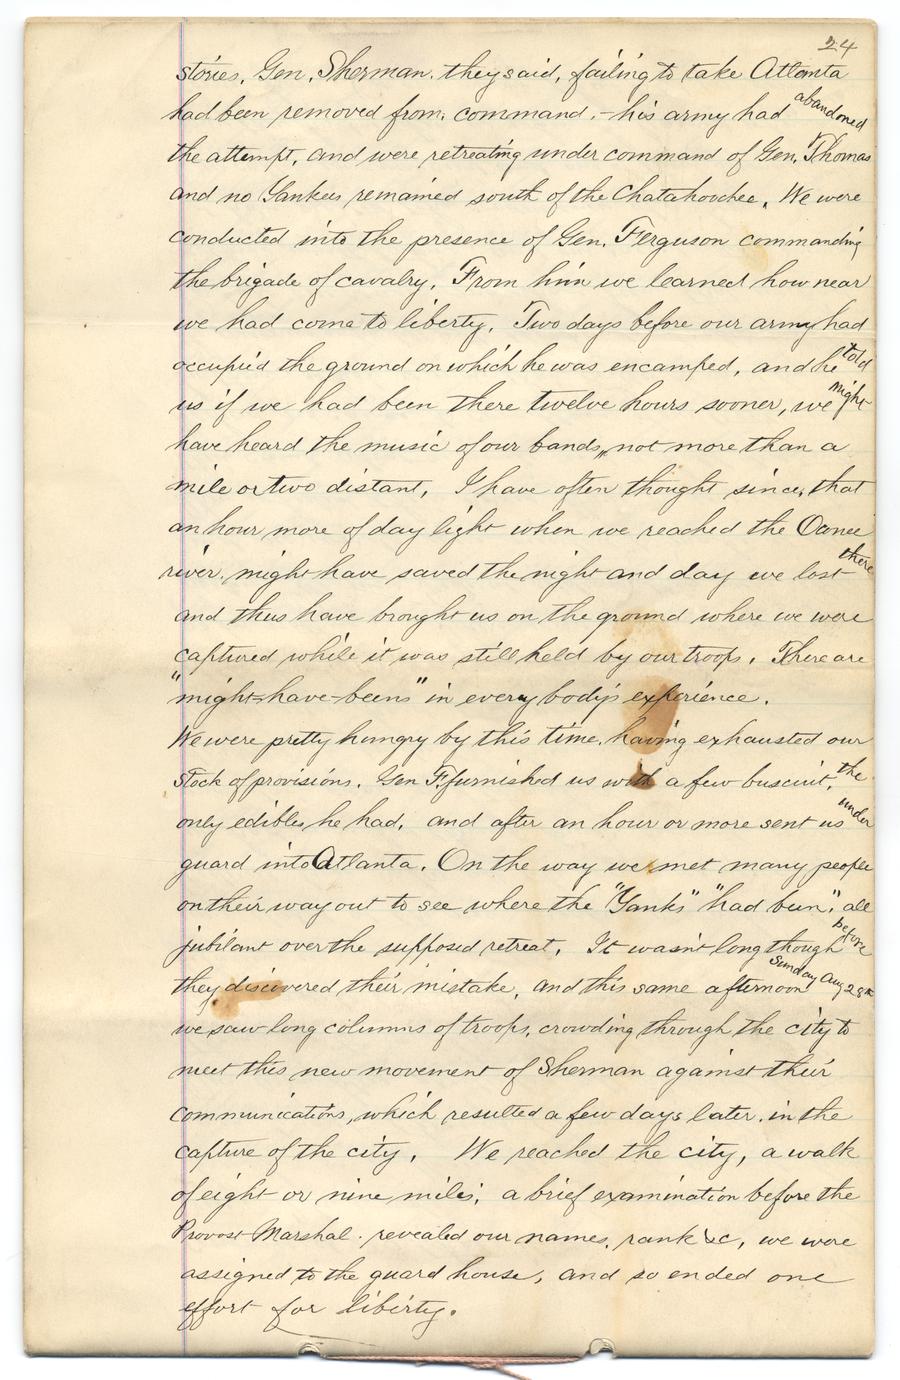 24
stories. Gen. Sherman. they said, failing to take Atlanta
had been removed from command. - his army had abandoned
the attempt, and were retreating under command of Gen. Thomas
and no Yankees remained south of the Chatahoochee. We were
conducted into the presence of Gen. Ferguson commanding
the brigade of cavalry. From him we learned how near
we had come to liberty. Two days before our army had
occupied the ground on which he was encamped, and he told
us if we had been there twelve hours sooner, we might
have heard the music of our bands, not more than a
mile or two distant. I have often thought since, that
an hour more of day light when we reached the Oconee
river. might have saved the night and day we lost there
and thus have brought us on the ground where we were
captured while it was still held by our troops. There are
"might-have-beens" in every body's experience.
We were pretty hungry by this time, having exhausted our
stock of provisions. Gen F. furnished us with a few buscuit, the
only edibles he had, and after an hour or more sent us under
guard into Atlanta. On the way we met many people
on their way out to see where the "Yanks" "had been", all
jubilant over the supposed retreat. It wasn't long though before
they discovered their mistake, and this same afternoon Sunday Aug 28th
we saw long columns of troops, crowding through the city to
meet this new movement of Sherman against their
communications, which resulted a few days later. in the
capture of the city. We reached the city, a walk
of eight or nine miles; a brief examination before the
Provost Marshal. revealed our names, rank &c, we were
assigned to the guard house, and so ended one
effort for liberty.